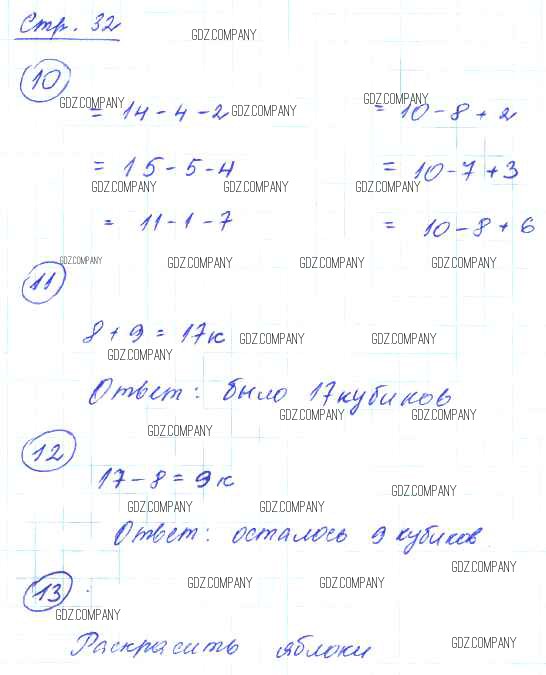 Стр. 32
GDZ.COMPANY
10
GDZ.COMPANY GDZ.COMPANY GDZ.COMPANY
= 14 - 4 - 2 = 10 - 8 + 2
= 15 - 5 - 4 = 10 - 7 + 3
GDZ.COMPANY GDZ.COMPANY GDZ.COMPANY
= 11 - 1 - 7 = 10 - 8 + 6
GDZ.COMPANY GDZ.COMPANY GDZ.COMPANY GDZ.COMPANY
11
8 + 9 = 17 к
GDZ.COMPANY GDZ.COMPANY
GDZ.COMPANY
Ответ: было 17 кубиков
GDZ.COMPANY GDZ.COMPANY
GDZ.COMPANY
12
17 - 8 = 9 к
GDZ.COMPANY
GDZ.COMPANY GDZ.COMPANY
Ответ: осталось 9 кубиков.
GDZ.COMPANY
GDZ.COMPANY GDZ.COMPANY
13
GDZ.COMPANY
Раскрасить яблоки
GDZ.COMPANY